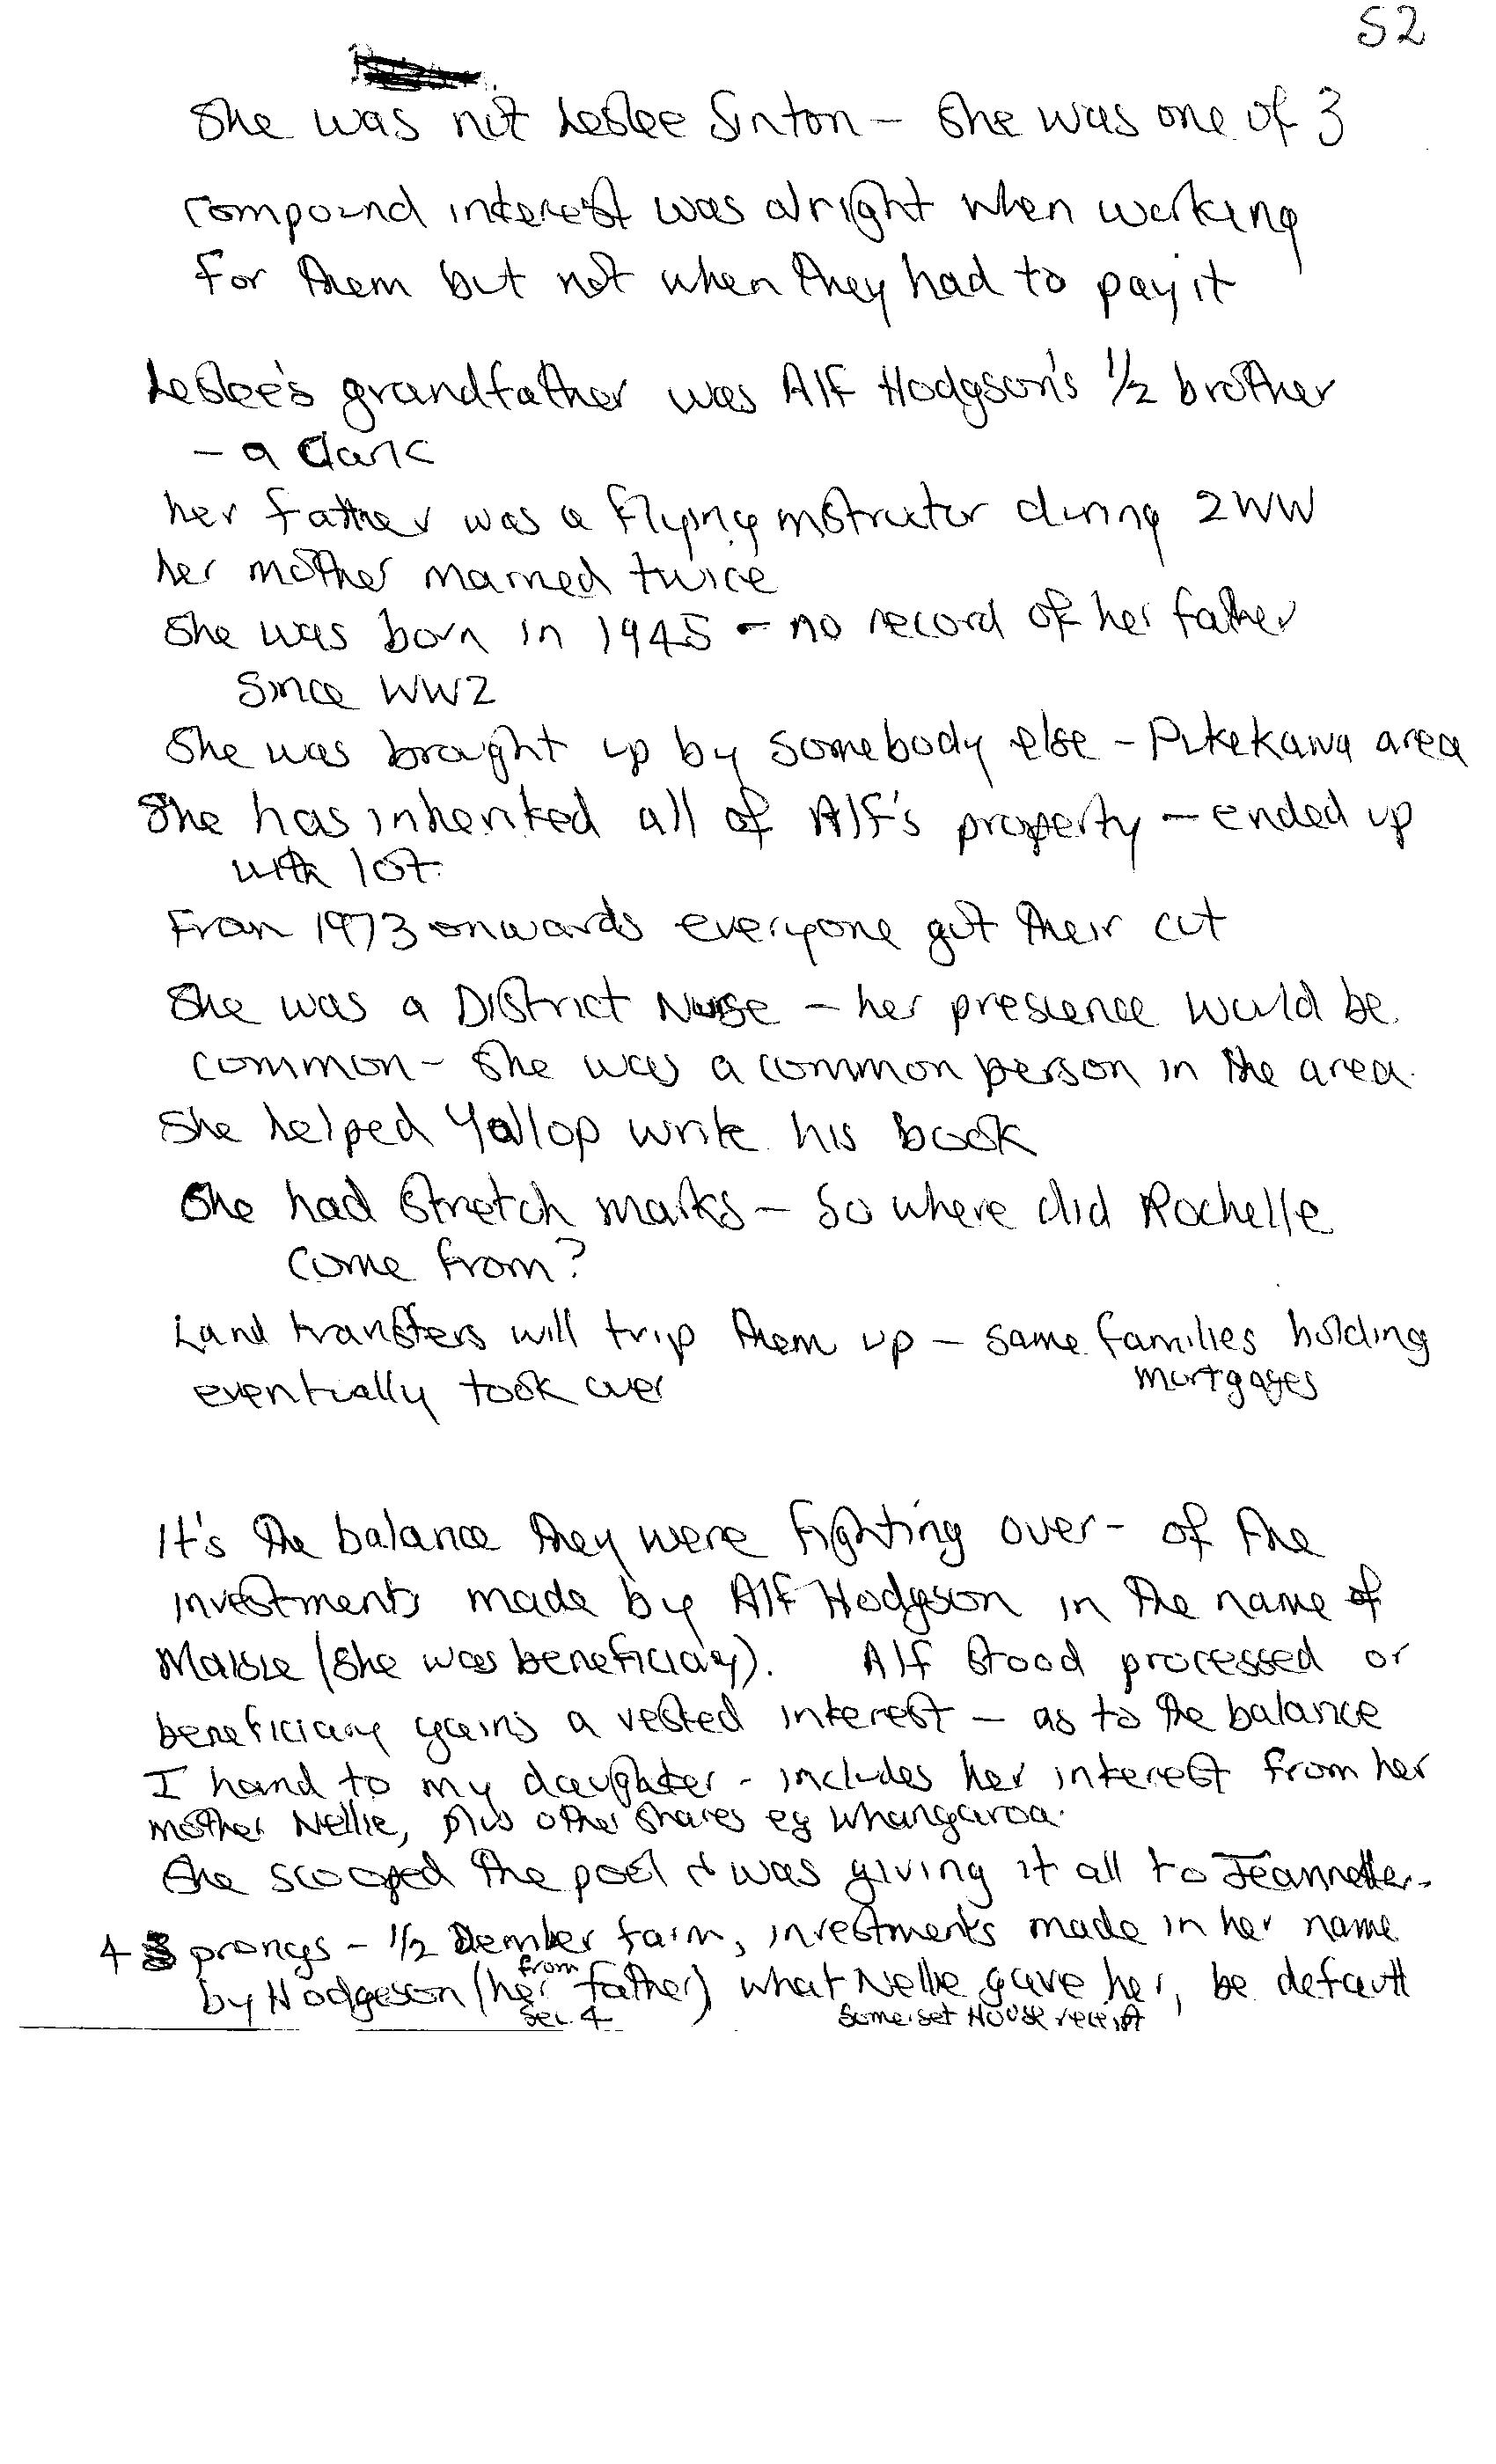 52
She was not Leslee Sinton - She was one of 3
compound interest was alright when working
for them but not when they had to pay it
Leslee's grandfather was Alf Hodgson's 1/2 brother
- a Clark
her father was a flying instructor during 2WW
her mother married twice
She was born in 1945 - no record of her father
Since WW2
She was brought up by somebody else - Pukekawa area
She has inherited all of Alf's property - ended up
with lot.
From 1973 onwards everyone got their cut
She was a District Nurse - her presence would be
common - She was a common person in the area.
She helped Yallop write his book
She had stretch marks - So where did Rochelle
come from?
Land transfers will trip them up - same families holding
mortgages
eventually took over
It's the balance they were fighting over - of the
investments made by Alf Hodgson in the name of
Maisie (she was beneficiary). Alf stood processed or
beneficiary gains a vested interest - as to the balance
I hand to my daughter - includes her interest from her
mother Nellie, plus other shares eg Whangaroa.
She scooped the pool & was giving it all to Jeannette.
4 prongs - 1/2 Demler farm, investments made in her name
by Hodgeson (her from father) what Nellie gave her, be default
Sec. 4 Somerset House receipt